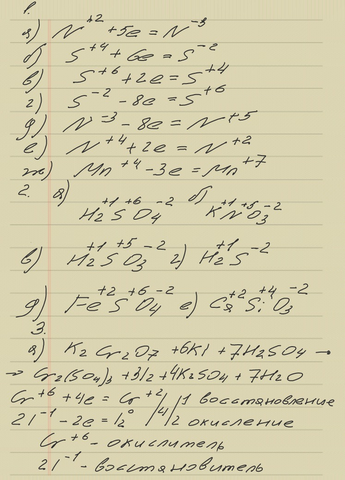 1.
а) N⁺² +5e = N⁻³
б) S⁺⁴ + 6e = S⁻²
в) S⁺⁶ + 2e = S⁺⁴
г) S⁻² - 8e = S⁺⁶
д) N⁻³ - 8e = N⁺⁵
е) N⁺⁴ + 2e = N⁺²
ж) Mn⁺⁴ - 3e = Mn⁺⁷
2. а) б)
+1 +6 -2 +1 +5 -2
H₂SO₄ KNO₃
+1 +5 -2 +1 -2
в) H₂SO₃ г) H₂S
+2 +6 -2 +2 +4 -2
д) FeSO₄ е) CaSiO₃
3.
а) K₂Cr₂O₇ +6KI + 7H₂SO₄ →
→ Cr₂(SO₄)₃ + 3I₂ + 4K₂SO₄ + 7H₂O
Cr⁺⁶ + 4e = Cr⁺² /4/1 восстановление
2I⁻¹ - 2e = I₂⁰ /2 окисление
Cr⁺⁶ - окислитель
2I⁻¹ - восстановитель